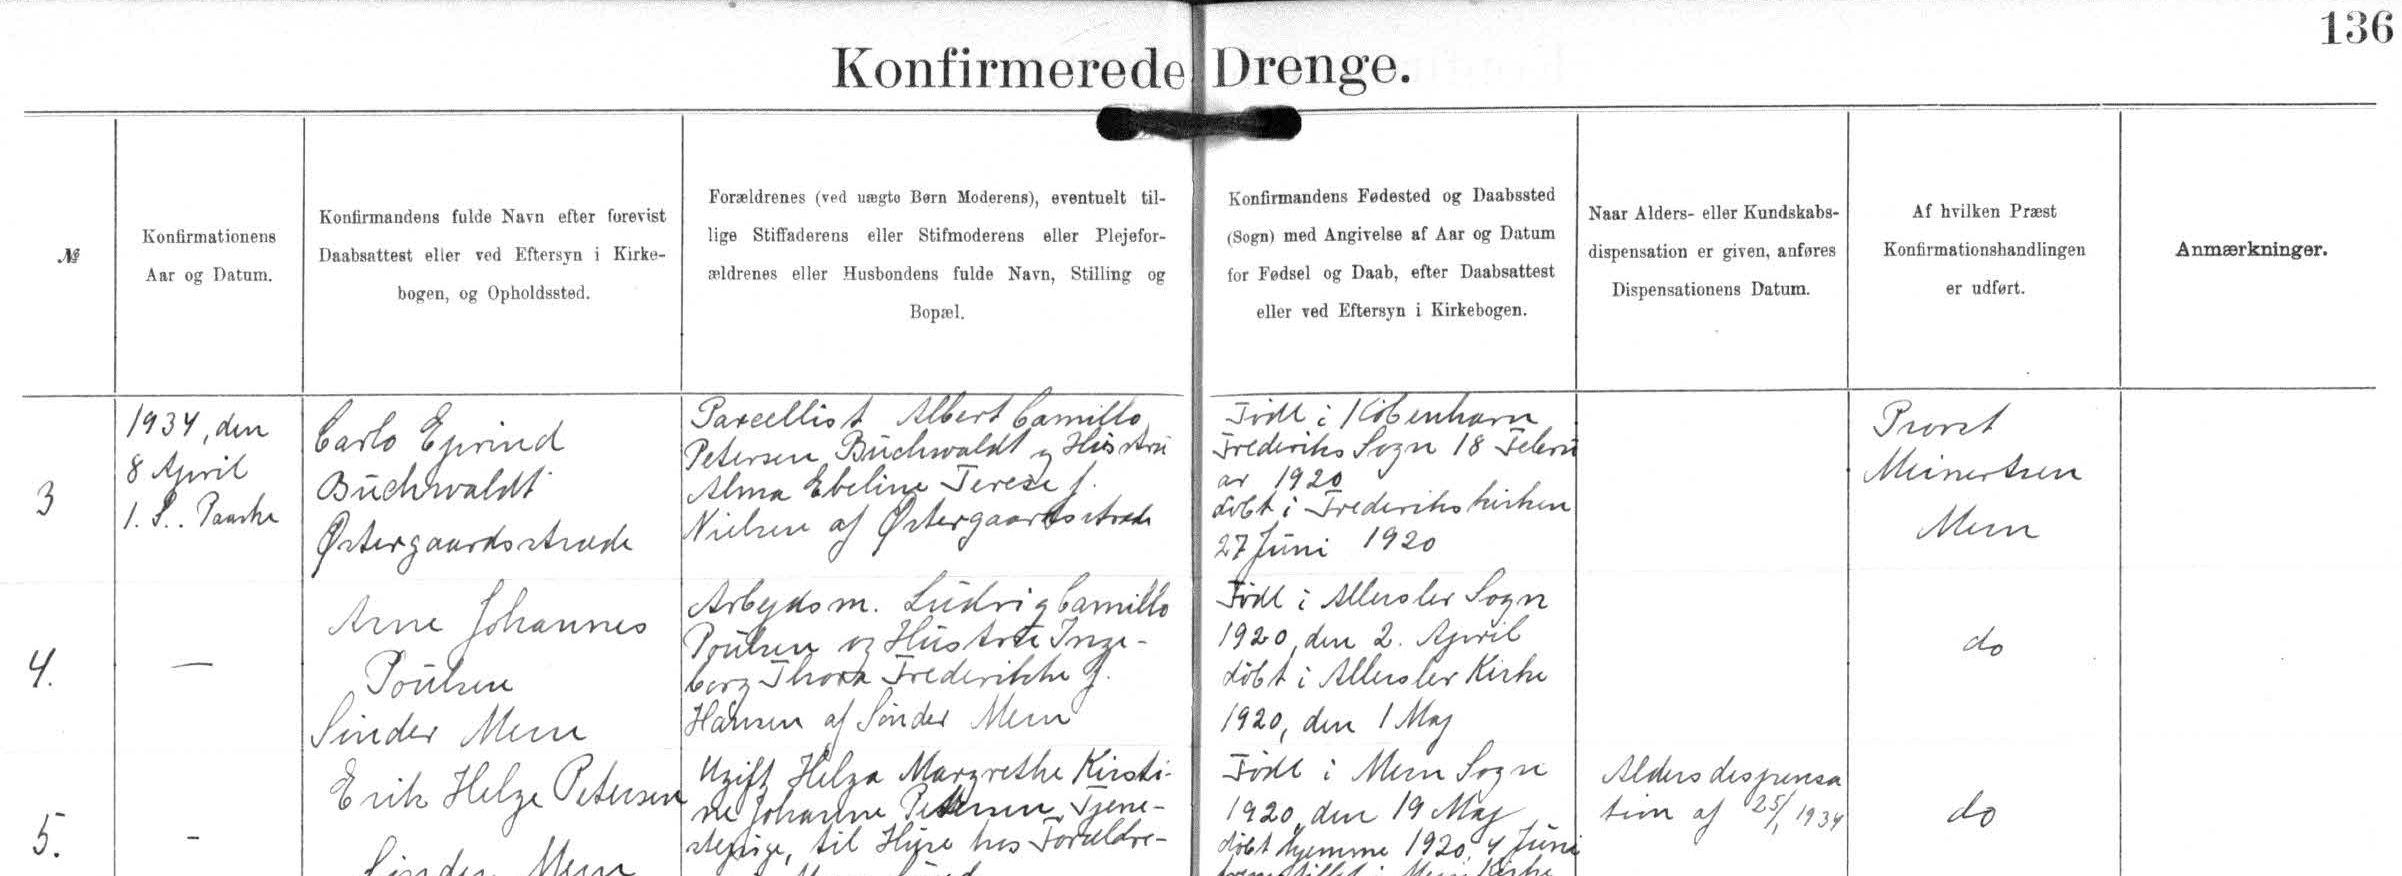 136
Konfirmerede Drenge.
№
Konfirmationens
Aar og Datum.
Konfirmandens fulde Navn efter forevist
Daabsattest eller ved Eftersyn i Kirke-
bogen, og Opholdssted.
Forældrenes (ved uægte Børn Moderens), eventuelt til-
lige Stiffaderens eller Stifmoderens eller Plejefor-
ældrenes eller Husbondens fulde Navn, Stilling og
Bopæl.
Konfirmandens Fødested og Daabssted
(Sogn) med Angivelse af Aar og Datum
for Fødsel og Daab, efter Daabsattest
eller ved Eftersyn i Kirkebogen.
Naar Alders- eller Kundskabs-
dispensation er given, anføres
Dispensationens Datum.
Af hvilken Præst
Konfirmationshandlingen
er udført.
Anmærkninger.
3
1934, den
8 April
1. S.. Paaske
Carlo Ejvind
Buchwaldt
Østergaardsstræde
Parcellist Albert Camillo
Petersen Buchwaldt og Hustru
Alma Ebeline Terese f.
Nielsen af Østergaardsstræde
Født i København
Frederiks Sogn 18 Febru
ar 1920
døbt i Frederikskirken
27 Juni 1920
Provst
Meinertsen
Mern
4.
—
Arne Johannes
Poulsen
Sønder Mern
Arbejdsm. Ludvig Camillo
Poulsen og Hustru Inge-
borg Thora Frederikke f.
Hansen af Sønder Mern
Født i Allerslev Sogn
1920, den 2. April
døbt i Allerslev Kirke
1920, den 1 Maj
do
5.
-
Erik Helge Petersen
Sønder Mern
Ugift Helga Margrethe Kirsti-
ne Johanne Petersen, Tjene-
stepige, til Huse hos Forældre-
Født i Mern Sogn
1920, den 19 Maj
døbt hjemme 1920, 4 Juni
fremstillet i Mern Kirke
Aldersdespensa
tion af 25/1 1934
do